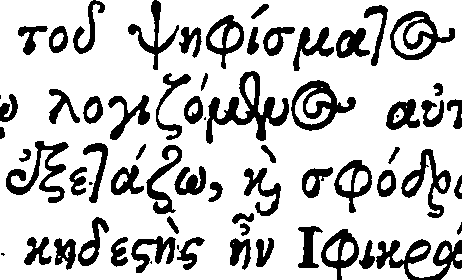 τοῦ ψηφίσματος
λογιζόμενος αὐτ
ἐξετάζω, ϗ̀ σφόδρα
κηδεϛὴς ἦν Ιφικρά